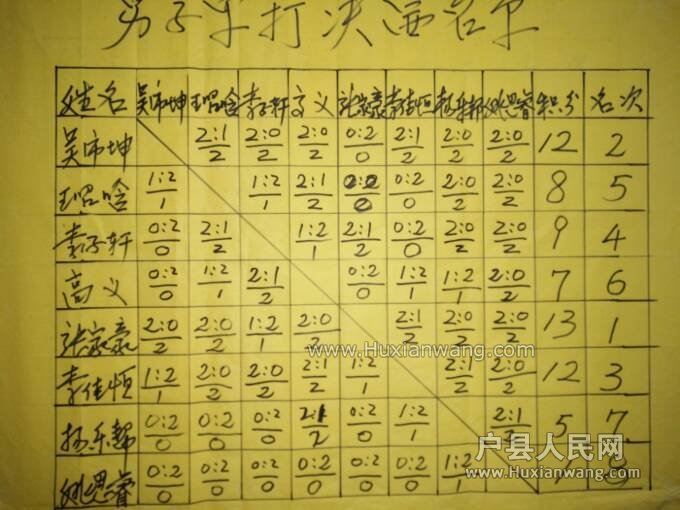 男子单打决赛名单
姓名 吴沛坤 王昭晗 李子轩 高义 张家豪 李佳恒 杨乐郡 姚思睿 积分 名次
吴沛坤 2:1/2 2:0/2 2:0/2 0:2/0 2:1/2 2:0/2 2:0/2 12 2
1:2/1 1:2/1 2:1/2 0:2/0 2:0/2 2:0/2 8 5
李子轩 0:2/0 2:1/2 1:2/1 2:1/2 0:2/0 2:0/2 2:0/2 9 4
高义 0:2/0 1:2/1 2:1/2 0:2/0 1:2/1 1:2/1 2:0/2 7 6
张家豪 2:0/2 2:0/2 1:2/1 2:0/2 2:1/2 2:0/2 2:0/2 13 1
www.Huxianwang.com
李佳恒 1:2/1 2:0/2 2:0/2 2:1/2 1:2/1 2:1/2 2:0/2 12 3
0:2/0 0:2/0 0:2/0 2:1/2 0:2/0 1:2/1 2:1/2 5 7
姚思睿 0:2/0 0:2/0 0:2/0 0:2/0 0:2/0 0:2/0 1:2/1 8
户县人民网
www.Huxianwang.com